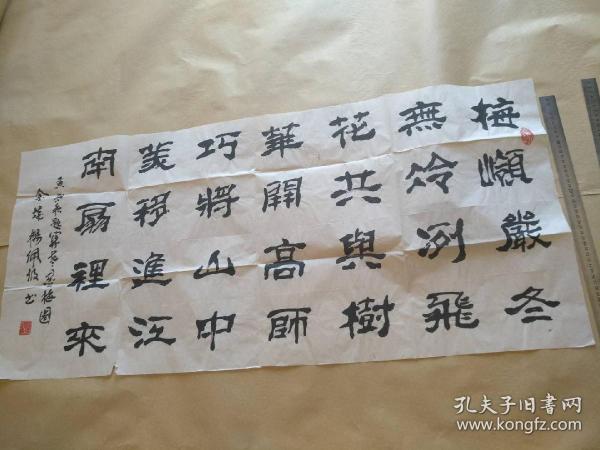 梅嚴冬
無冷冽飛
花共與樹
華開高師
巧將山中
美移進江
南扇裡來
梅圖
金陵楊佩書
孔夫子旧書网
www.kongfz.com